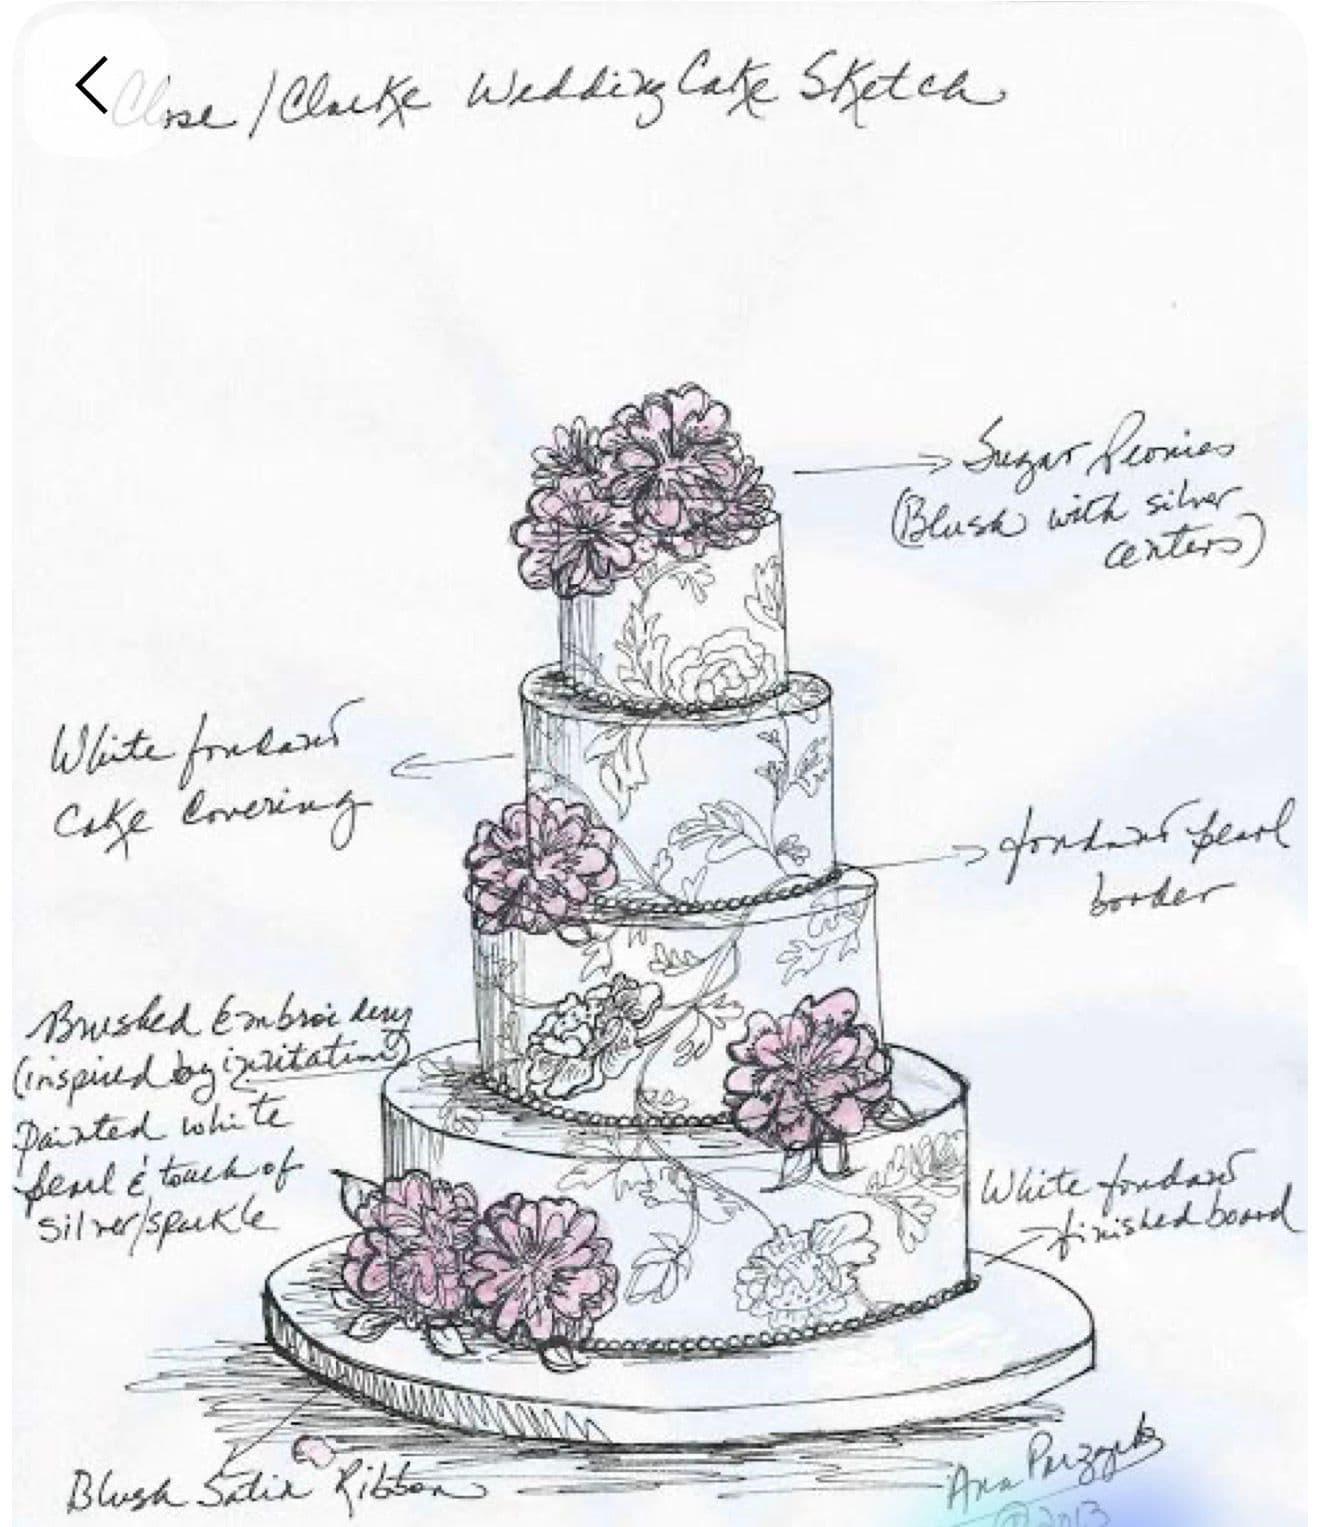 Close / Clarke Wedding Cake Sketch
Sugar Peonies
(Blush with silver
centers)
White fondant
Cake Covering
fondant pearl
border
Brushed Embroidery
(inspired by invitation)
Painted white
pearl & touch of
silver/sparkle
White fondant
finished board
Blush Satin Ribbon
Ana Parzych
© 2013